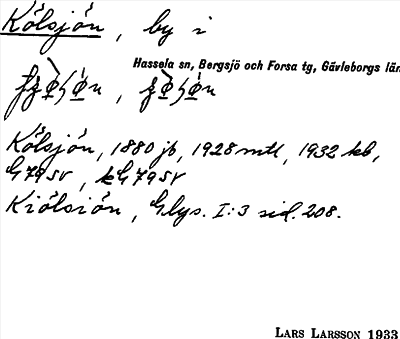 Kölsjön, by i
Hassela sn, Bergsjö och Forsa tg, Gävleborgs län
Kölsjön, 1880 jb, 1928 mtl, 1932 kb,
G79SV, kG79SV
Kiölsiön, Glys. I:3 sid. 208.
LARS LARSSON 1933